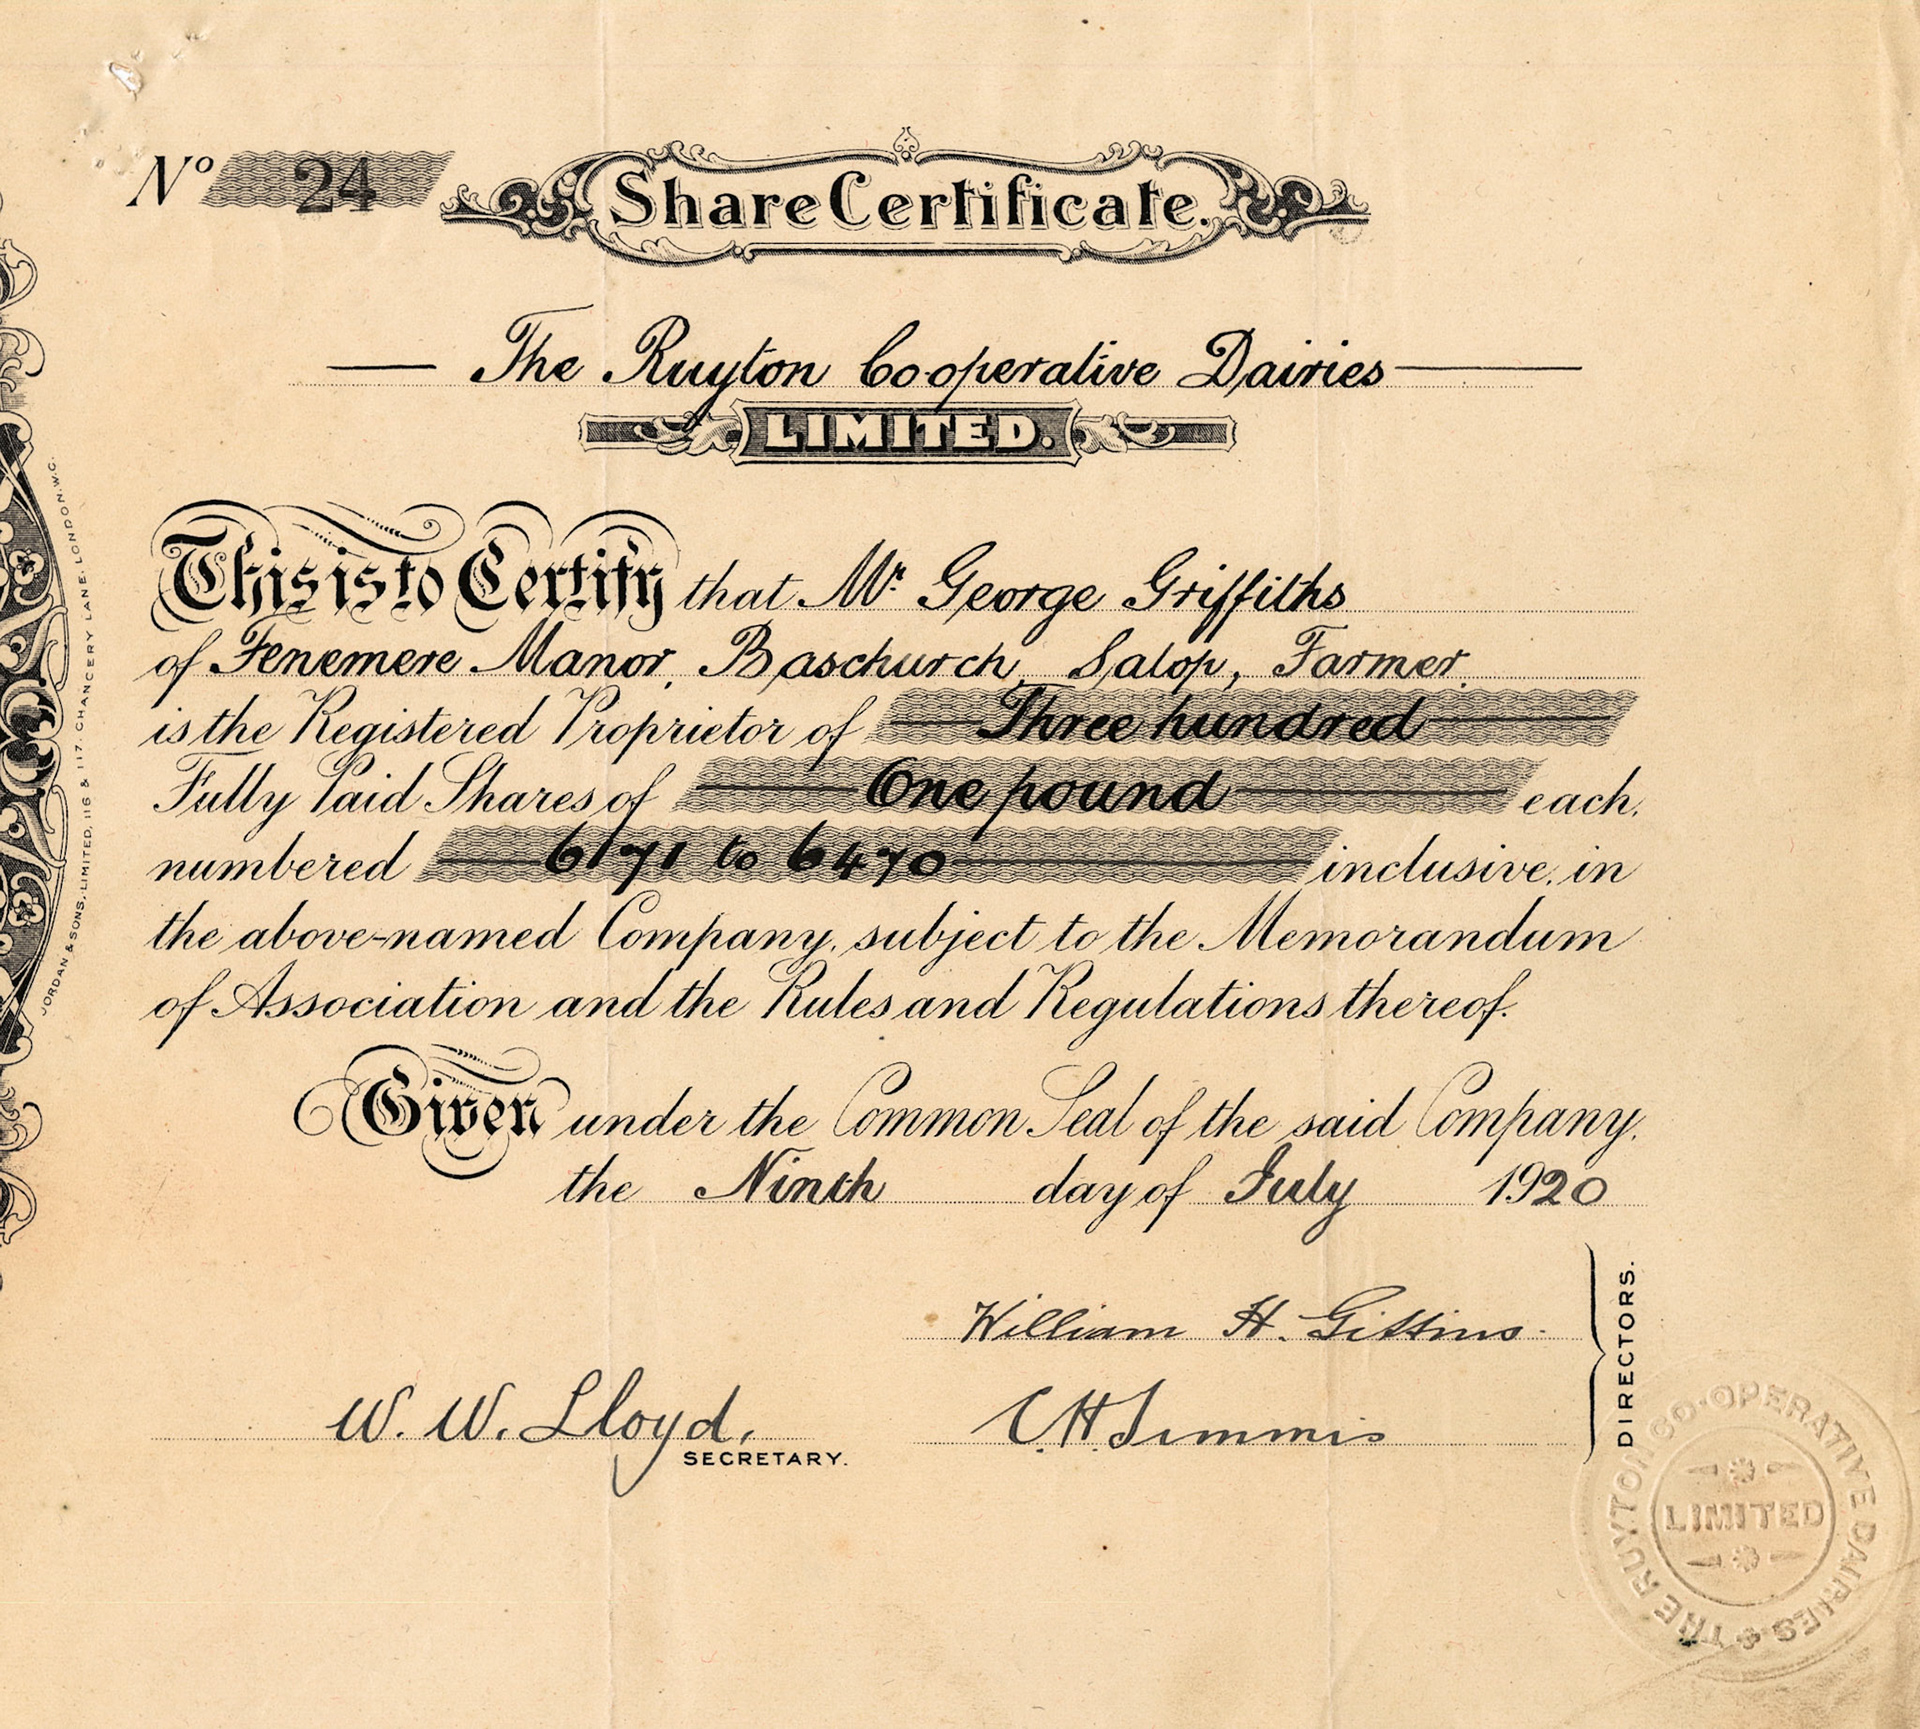 Nº 24
Share Certificate.
The Ruyton Co-operative Dairies
LIMITED.
This is to Certify that Mr. George Griffiths
of Fenemere Manor, Baschurch, Salop, Farmer.
is the Registered Proprietor of Three hundred
Fully Paid Shares of One pound each,
numbered 6171 to 6470 inclusive, in
the above-named Company, subject to the Memorandum
of Association and the Rules and Regulations thereof.
Given under the Common Seal of the said Company,
the Ninth day of July 1920
William H. Gittins.
W. W. Lloyd,
SECRETARY.
C. H. Timmis
DIRECTORS.
THE RUYTON CO-OPERATIVE DAIRIES
LIMITED
JORDAN & SONS, LIMITED, 116 & 117, CHANCERY LANE, LONDON, W.C.